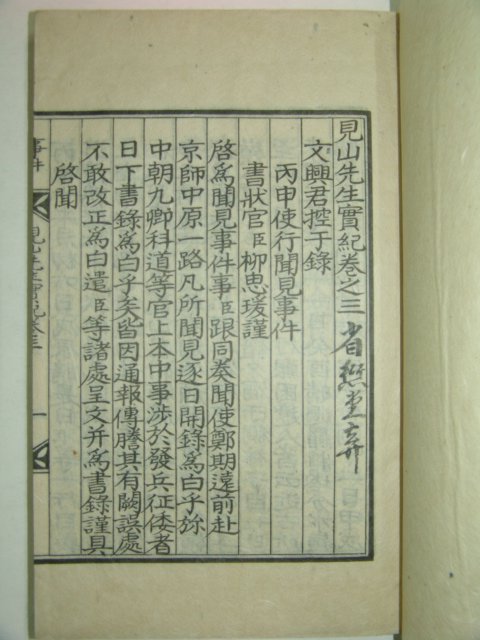 見山先生實紀卷之三
文興君控于錄
丙申使行聞見事件
書狀官臣柳思瑗謹
啓爲聞見事件事臣跟同奏聞使鄭期遠前赴
京師中原一路凡所聞見逐日開錄爲白乎旀
中朝九卿科道等官上本中事涉於發兵征倭者
日下書錄爲白乎矣皆因通報傳謄其有闕誤處
不敢改正爲白遣臣等諸處呈文幷爲書錄謹具
啓聞
見山先生實紀卷三
一